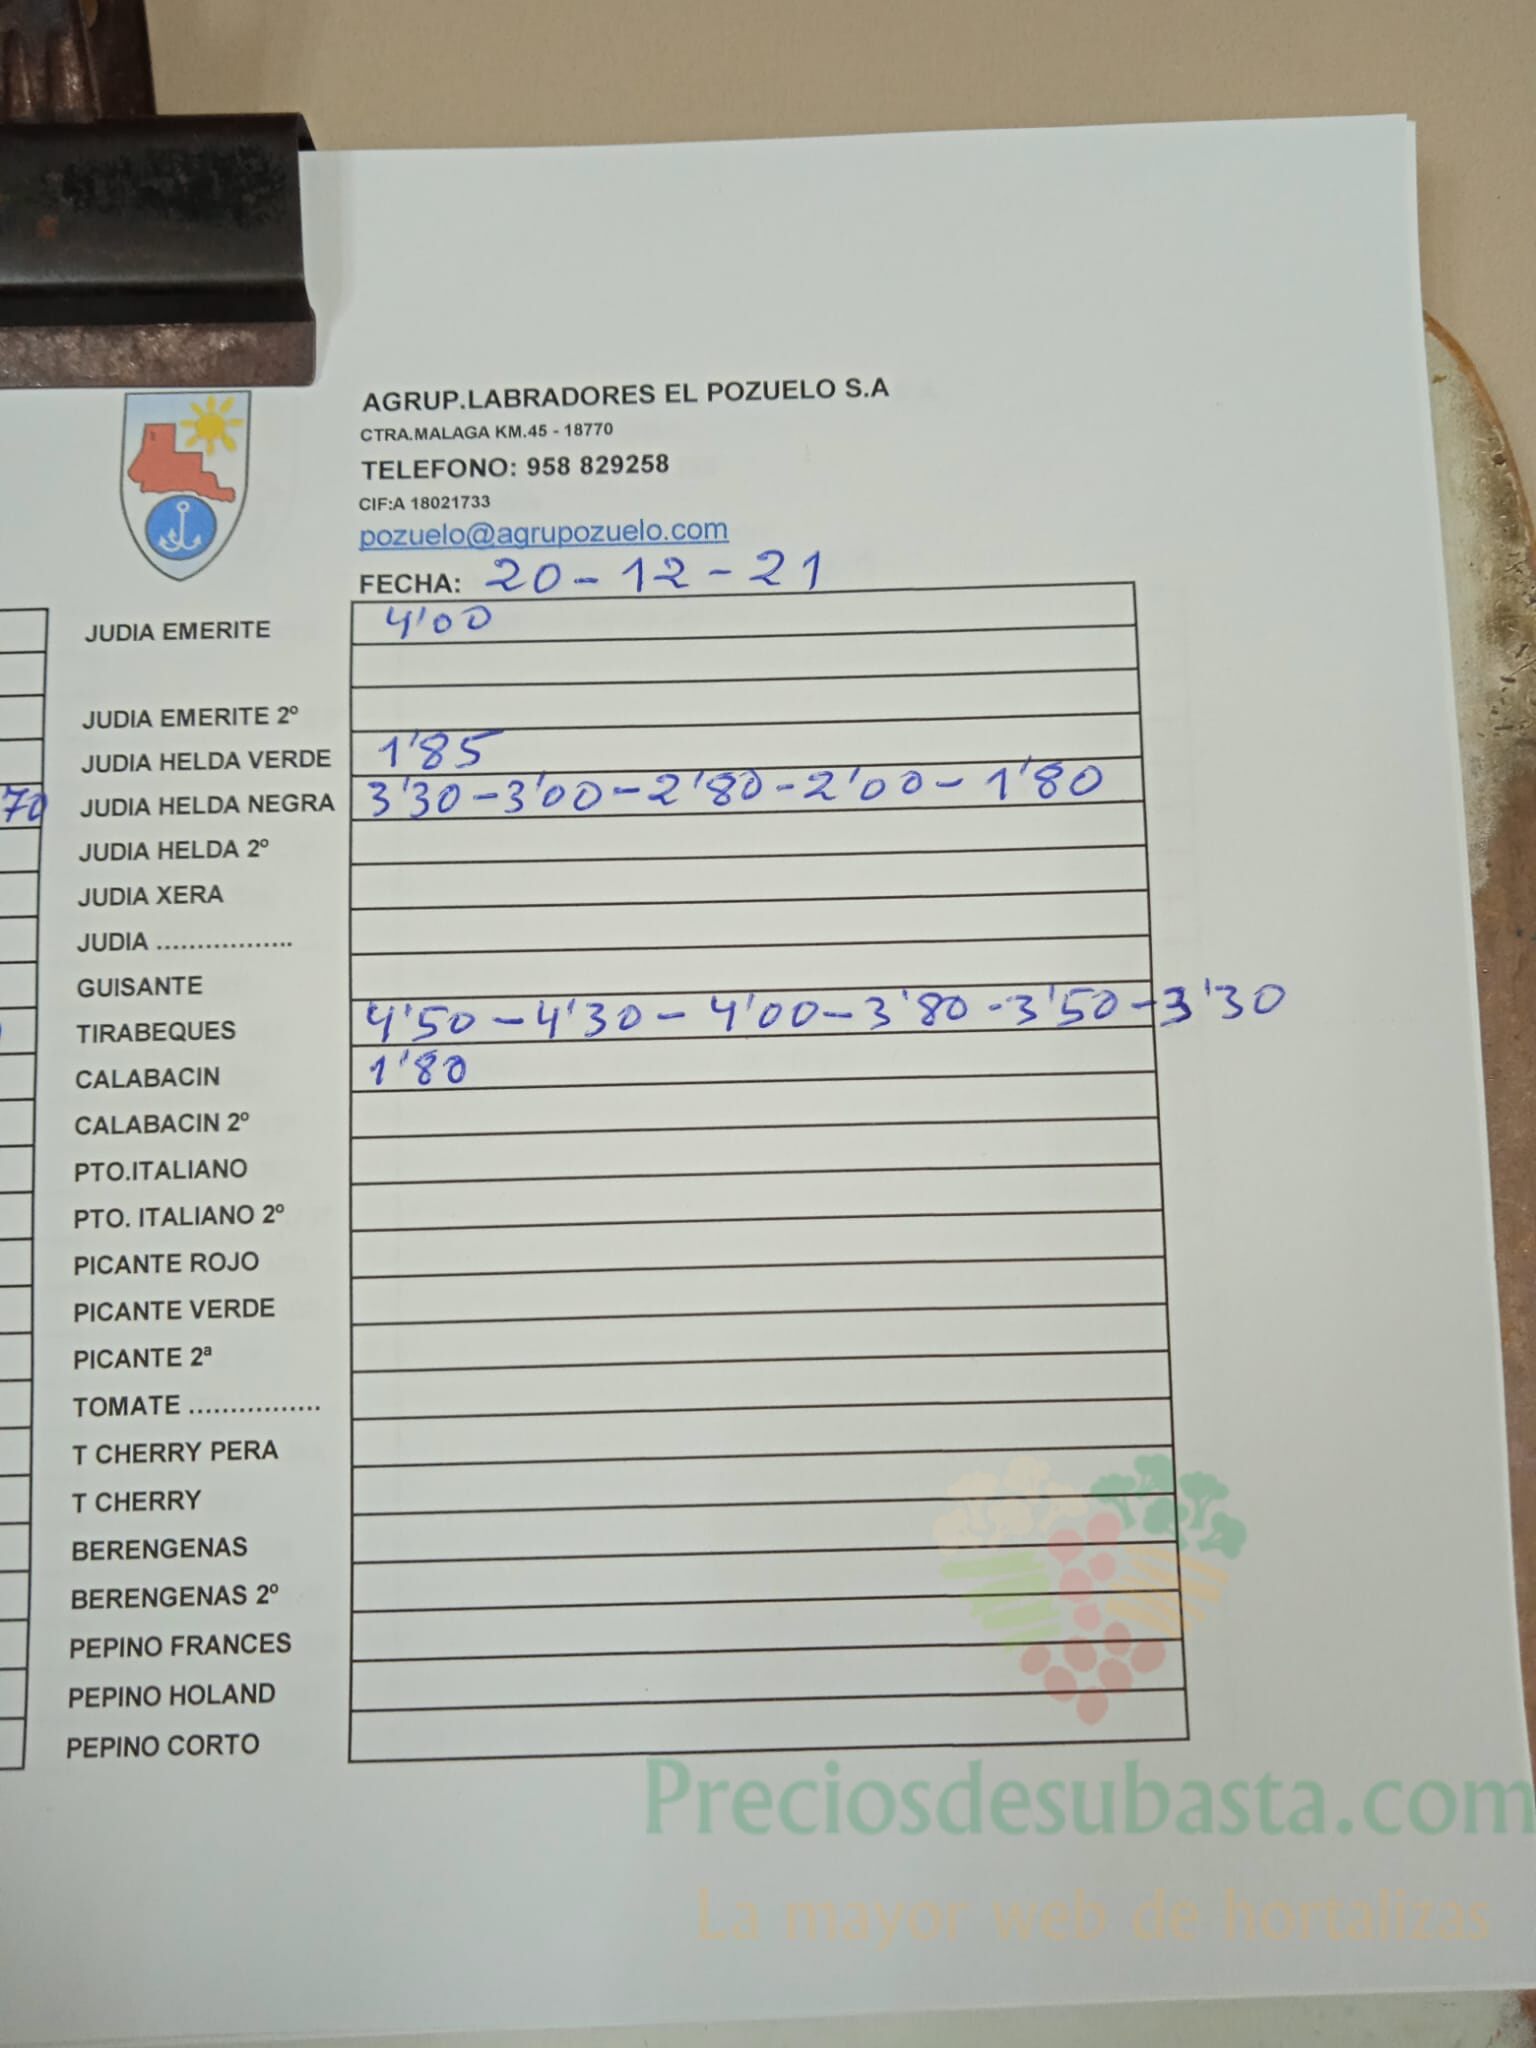 AGRUP.LABRADORES EL POZUELO S.A
CTRA.MALAGA KM.45 - 18770
TELEFONO: 958 829258
CIF:A 18021733
pozuelo@agrupozuelo.com
FECHA: 20-12-21
JUDIA EMERITE 4'00
JUDIA EMERITE 2º
JUDIA HELDA VERDE 1'85
70 JUDIA HELDA NEGRA 3'30-3'00-2'80-2'00-1'80
JUDIA HELDA 2º
JUDIA XERA
JUDIA .................
GUISANTE
TIRABEQUES 4'50-4'30-4'00-3'80-3'50-3'30
CALABACIN 1'80
CALABACIN 2º
PTO.ITALIANO
PTO. ITALIANO 2º
PICANTE ROJO
PICANTE VERDE
PICANTE 2ª
TOMATE ................
T CHERRY PERA
T CHERRY
BERENGENAS
BERENGENAS 2º
PEPINO FRANCES
PEPINO HOLAND
PEPINO CORTO
Preciosdesubasta.com
La mayor web de hortalizas